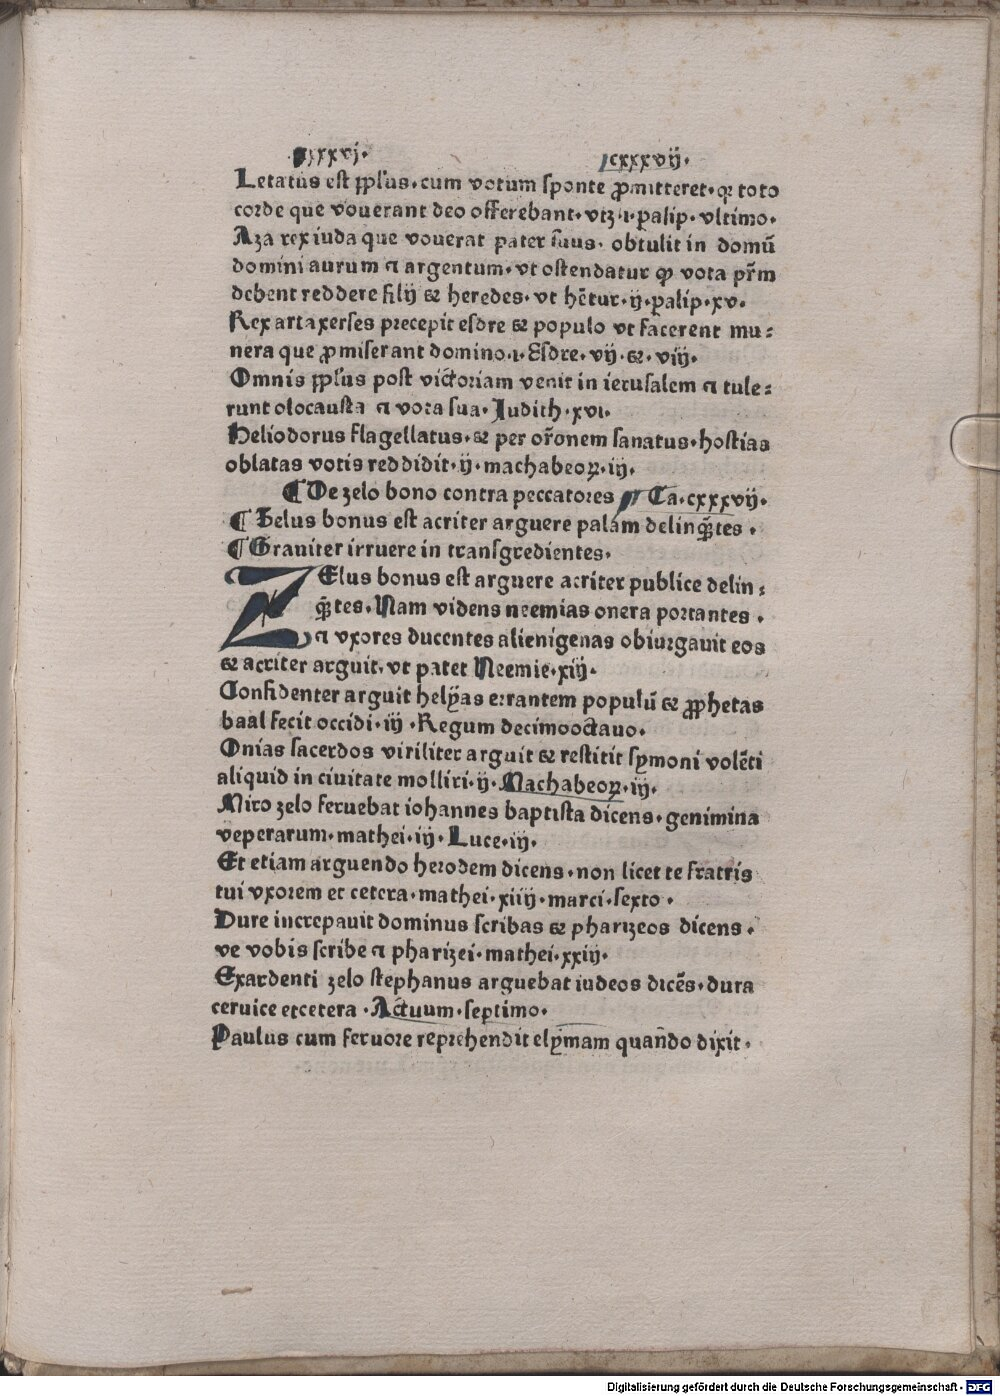 cxxxvij·
Letatus est ꝓpl'us·cum votum sponte ꝓmitteret·qꝛ toto
corde que vouerant deo offerebant·vtz·ı·palip·vltimo·
Aza rex iuda que vouerat pater suus· obtulit in domū
domini aurum ⁊ argentum·vt ostendatur ꝙ vota pr̄m
debent reddere filij & heredes·vt hētur·ij·palip·xv·
Rex artaxerses precepit esdre & populo vt facerent mu⸗
nera que ꝓmiserant domino·ı·Esdre·vij·&·viij·
Omnis ꝓpl'us post victoriam venit in ierusalem ⁊ tule⸗
runt olocausta ⁊ vota sua·Judith·xvı·
Heliodorus flagellatus·& per or̄onem sanatus·hostias
oblatas votis reddidit·ij·machabeoꝝ·iij·
¶ De zelo bono contra peccatores Ca·cxxxvij·
¶ Zelus bonus est acriter arguere palam delinq̄tes·
¶ Grauiter irruere in transgredientes·
ZElus bonus est arguere acriter publice delin⸗
q̄tes·Nam videns neemias onera portantes·
⁊ vxores ducentes alienigenas obiurgauit eos
& acriter arguit·vt patet Neemie·xiij·
Confidenter arguit helyas errantem populū & ꝓphetas
baal fecit occidi·iij·Regum decimooctauo·
Onias sacerdos viriliter arguit & restitit symoni volēti
aliquid in ciuitate molliri·ij·Machabeoꝝ·iij·
Miro zelo feruebat iohannes baptista dicens·genimina
veperarum·mathei·iij·Luce·iij·
Et etiam arguendo herodem dicens·non licet te fratris
tui vxorem et cetera·mathei·xiiij·marci·sexto·
Dure increpauit dominus scribas & pharizeos dicens·
ve vobis scribe ⁊ pharizei·mathei·xxiij·
Exardenti zelo stephanus arguebat iudeos dicēs·dura
ceruice etcetera·Actuum·septimo·
Paulus cum feruore reprehendit elymam quando dixit·
Digitalisierung gefördert durch die Deutsche Forschungsgemeinschaft - DFG